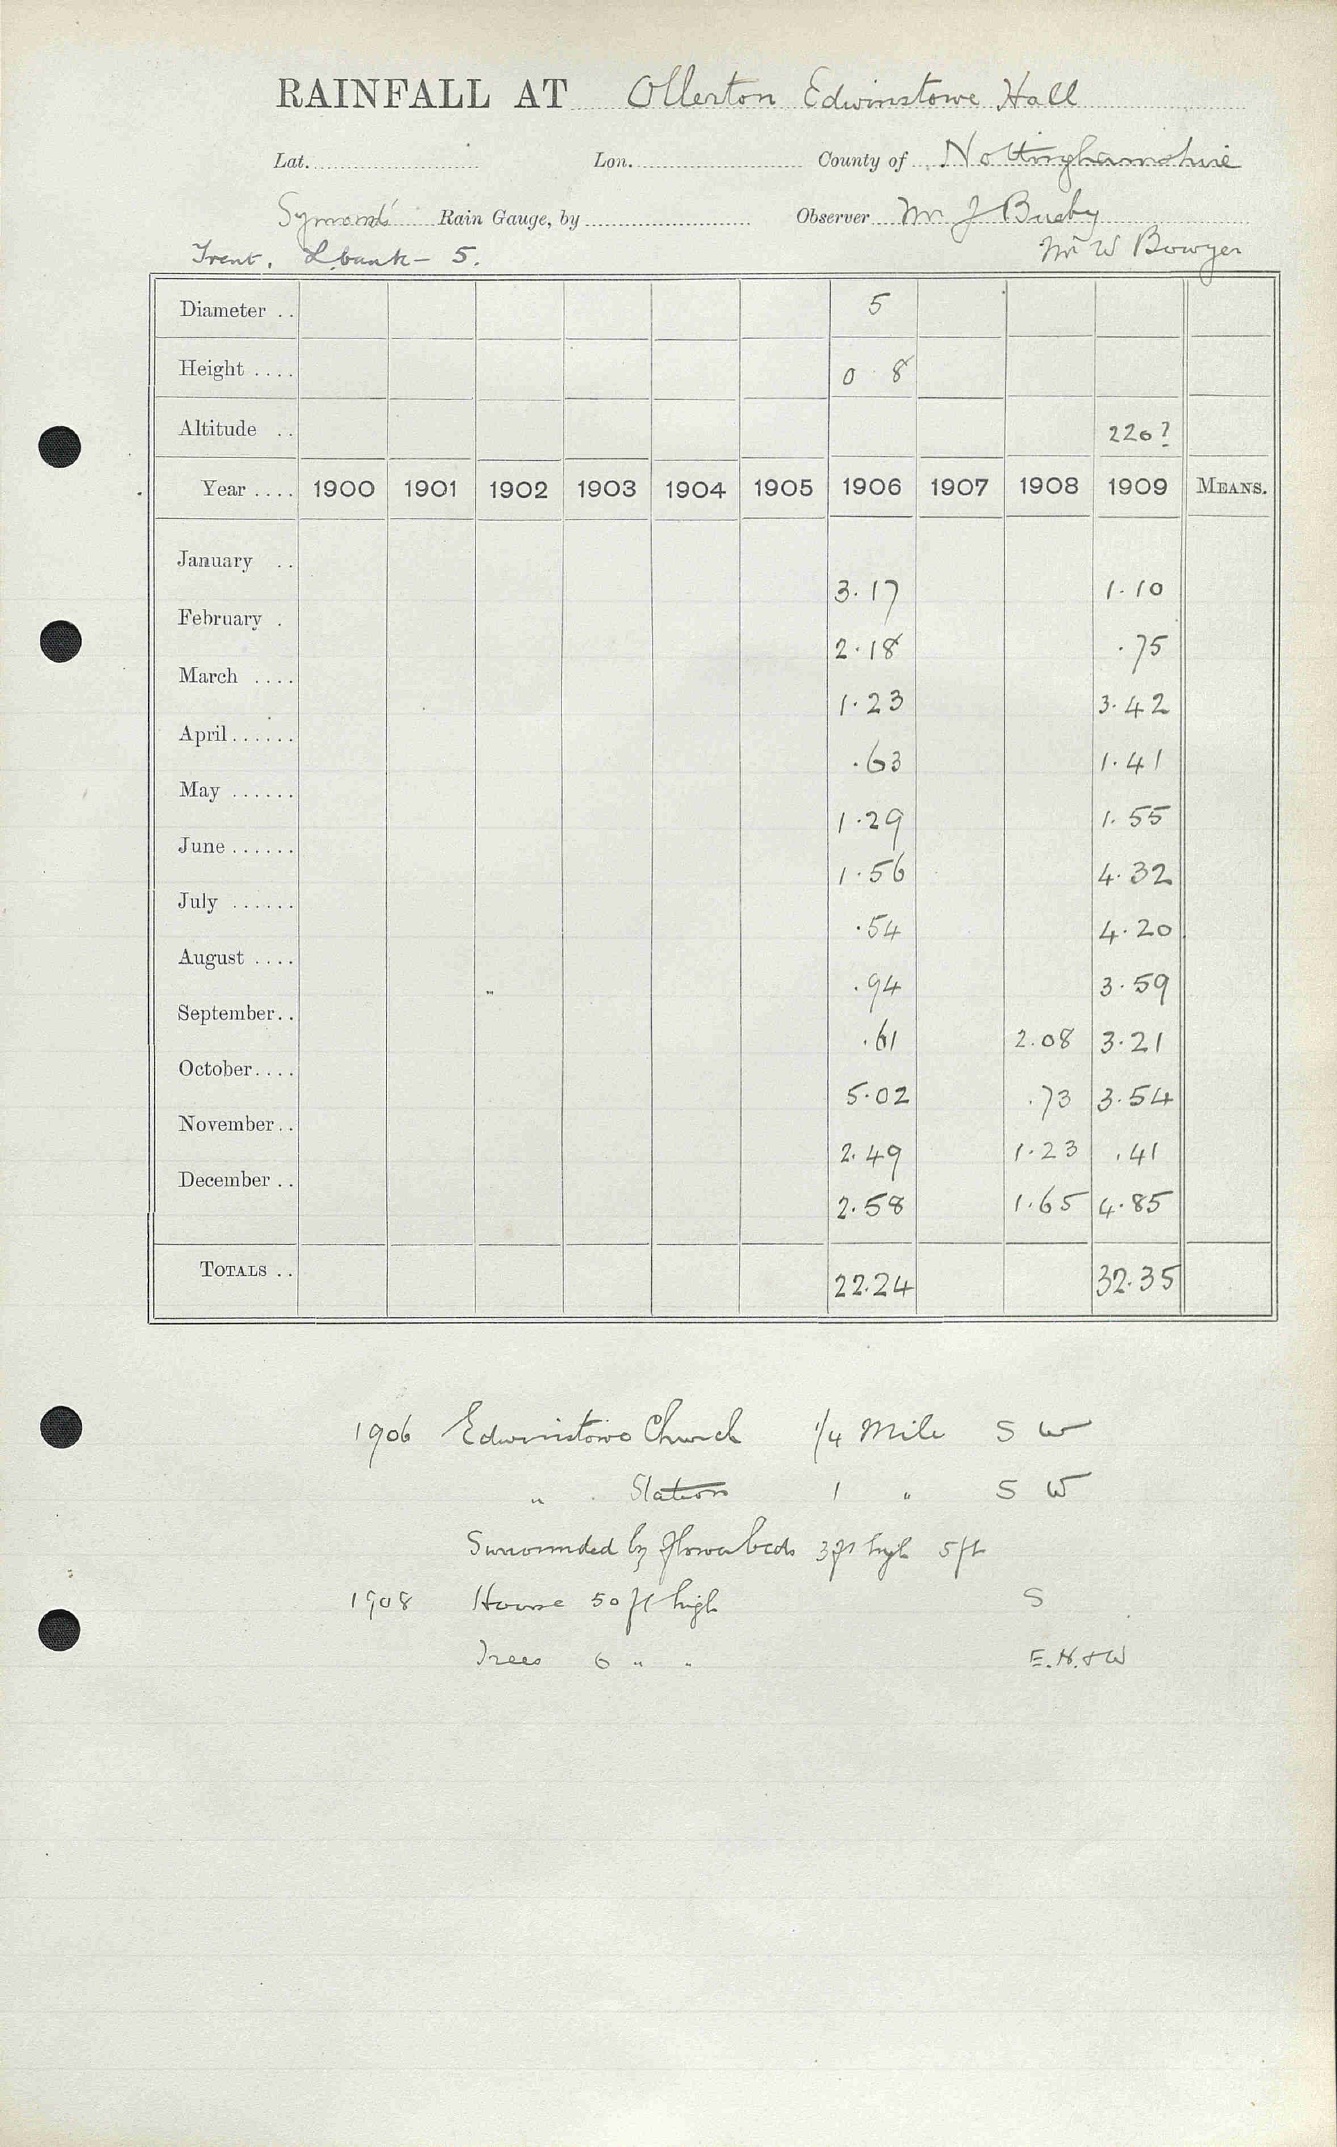 RAINFALL AT Ollerton Edwinstowe Hall
Lat. Lon. County of Nottinghamshire
Symons' Rain Gauge, by Observer Mr J Busby
Trent. L bank - 5. Mr W Bowyer
Diameter .. 5
Height .... 0 8
Altitude .. 220?
Year .... 1900 1901 1902 1903 1904 1905 1906 1907 1908 1909 MEANS.
January .. 3.17 1.10
February . 2.18 .75
March .... 1.23 3.42
April...... .63 1.41
May ...... 1.29 1.55
June...... 1.56 4.32
July ...... .54 4.20
August .... .94 3.59
September.. .61 2.08 3.21
October.... 5.02 .73 3.54
November.. 2.49 1.23 .41
December .. 2.58 1.65 4.85
TOTALS .. 22.24 32.35
1906 Edwinstowe Church 1/4 Mile S W
" Station 1 " S W
Surrounded by flower beds 3ft high 5ft
1908 House 50 ft high S
Trees 6 " " E.N.&W